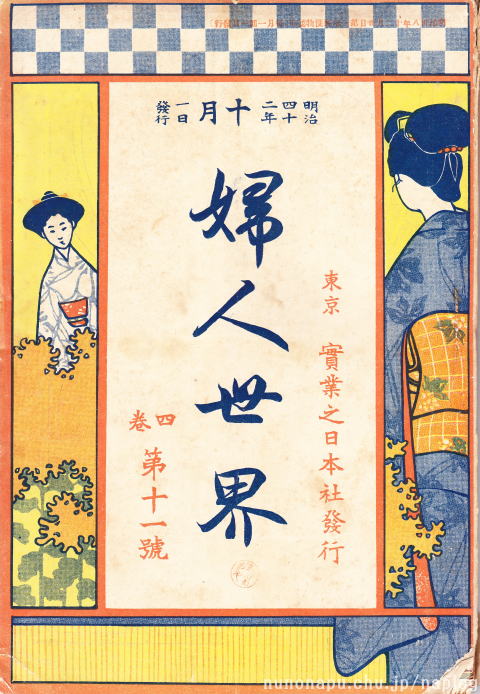 明治四十二年十月一日發行
東京 實業之日本社發行
婦人世界
四卷 第十一號